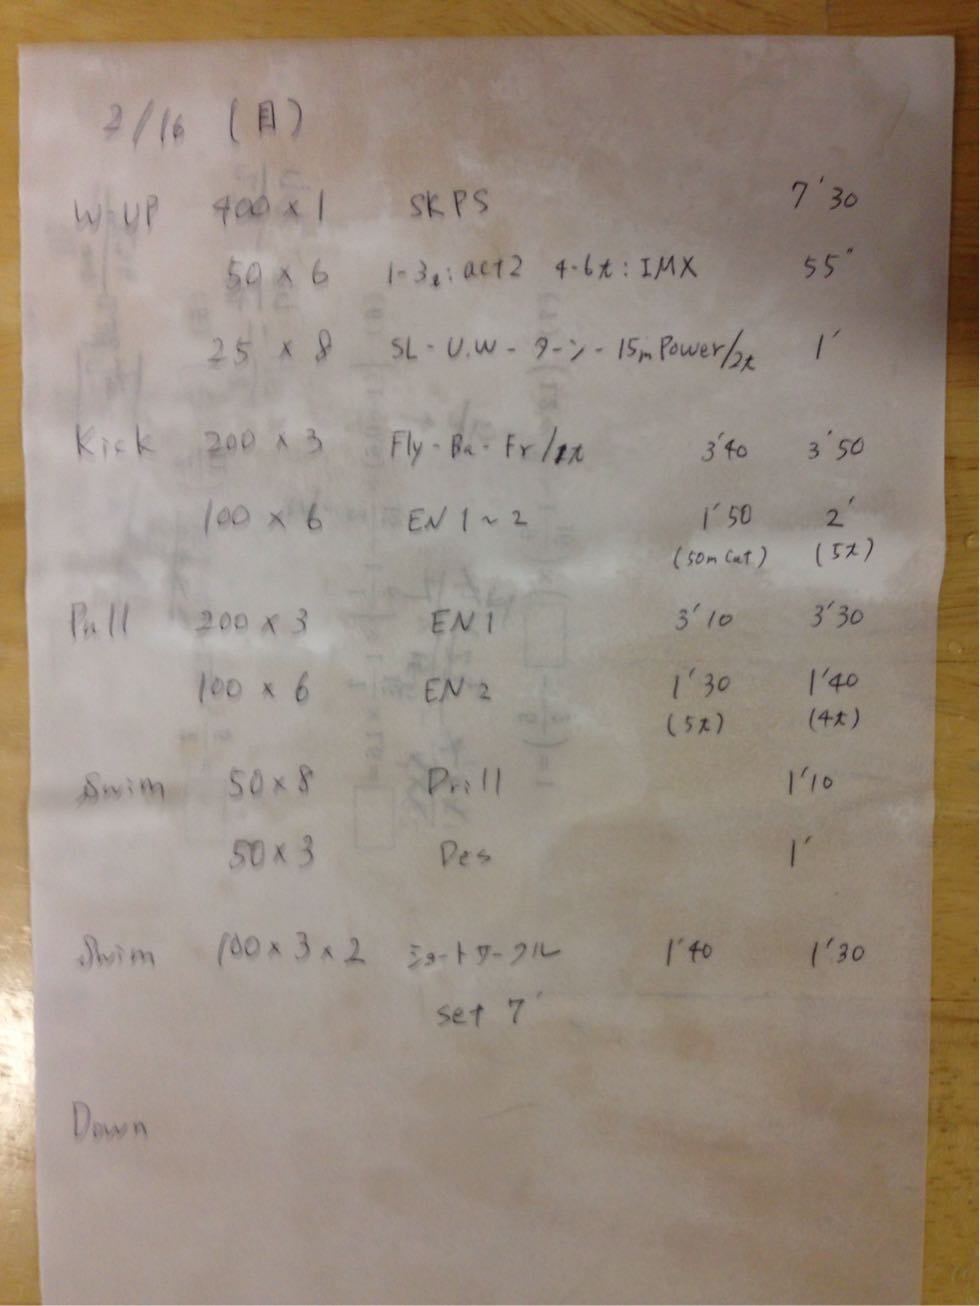 2/16 (日)
W-UP 400×1 SKPS 7'30
50×6 1-3t:act2 4-6t:IMX 55"
25×8 SL-U.W-ターン-15mPower/2t 1'
Kick 200×3 Fly-Ba-Fr/1t 3'40 3'50
100×6 EN1~2 1'50 2'
(50m cut) (5t)
Pull 200×3 EN1 3'10 3'30
100×6 EN2 1'30 1'40
(5t) (4t)
Swim 50×8 Drill 1'10
50×3 Des 1'
Swim 100×3×2 ショートサークル 1'40 1'30
set 7'
Down